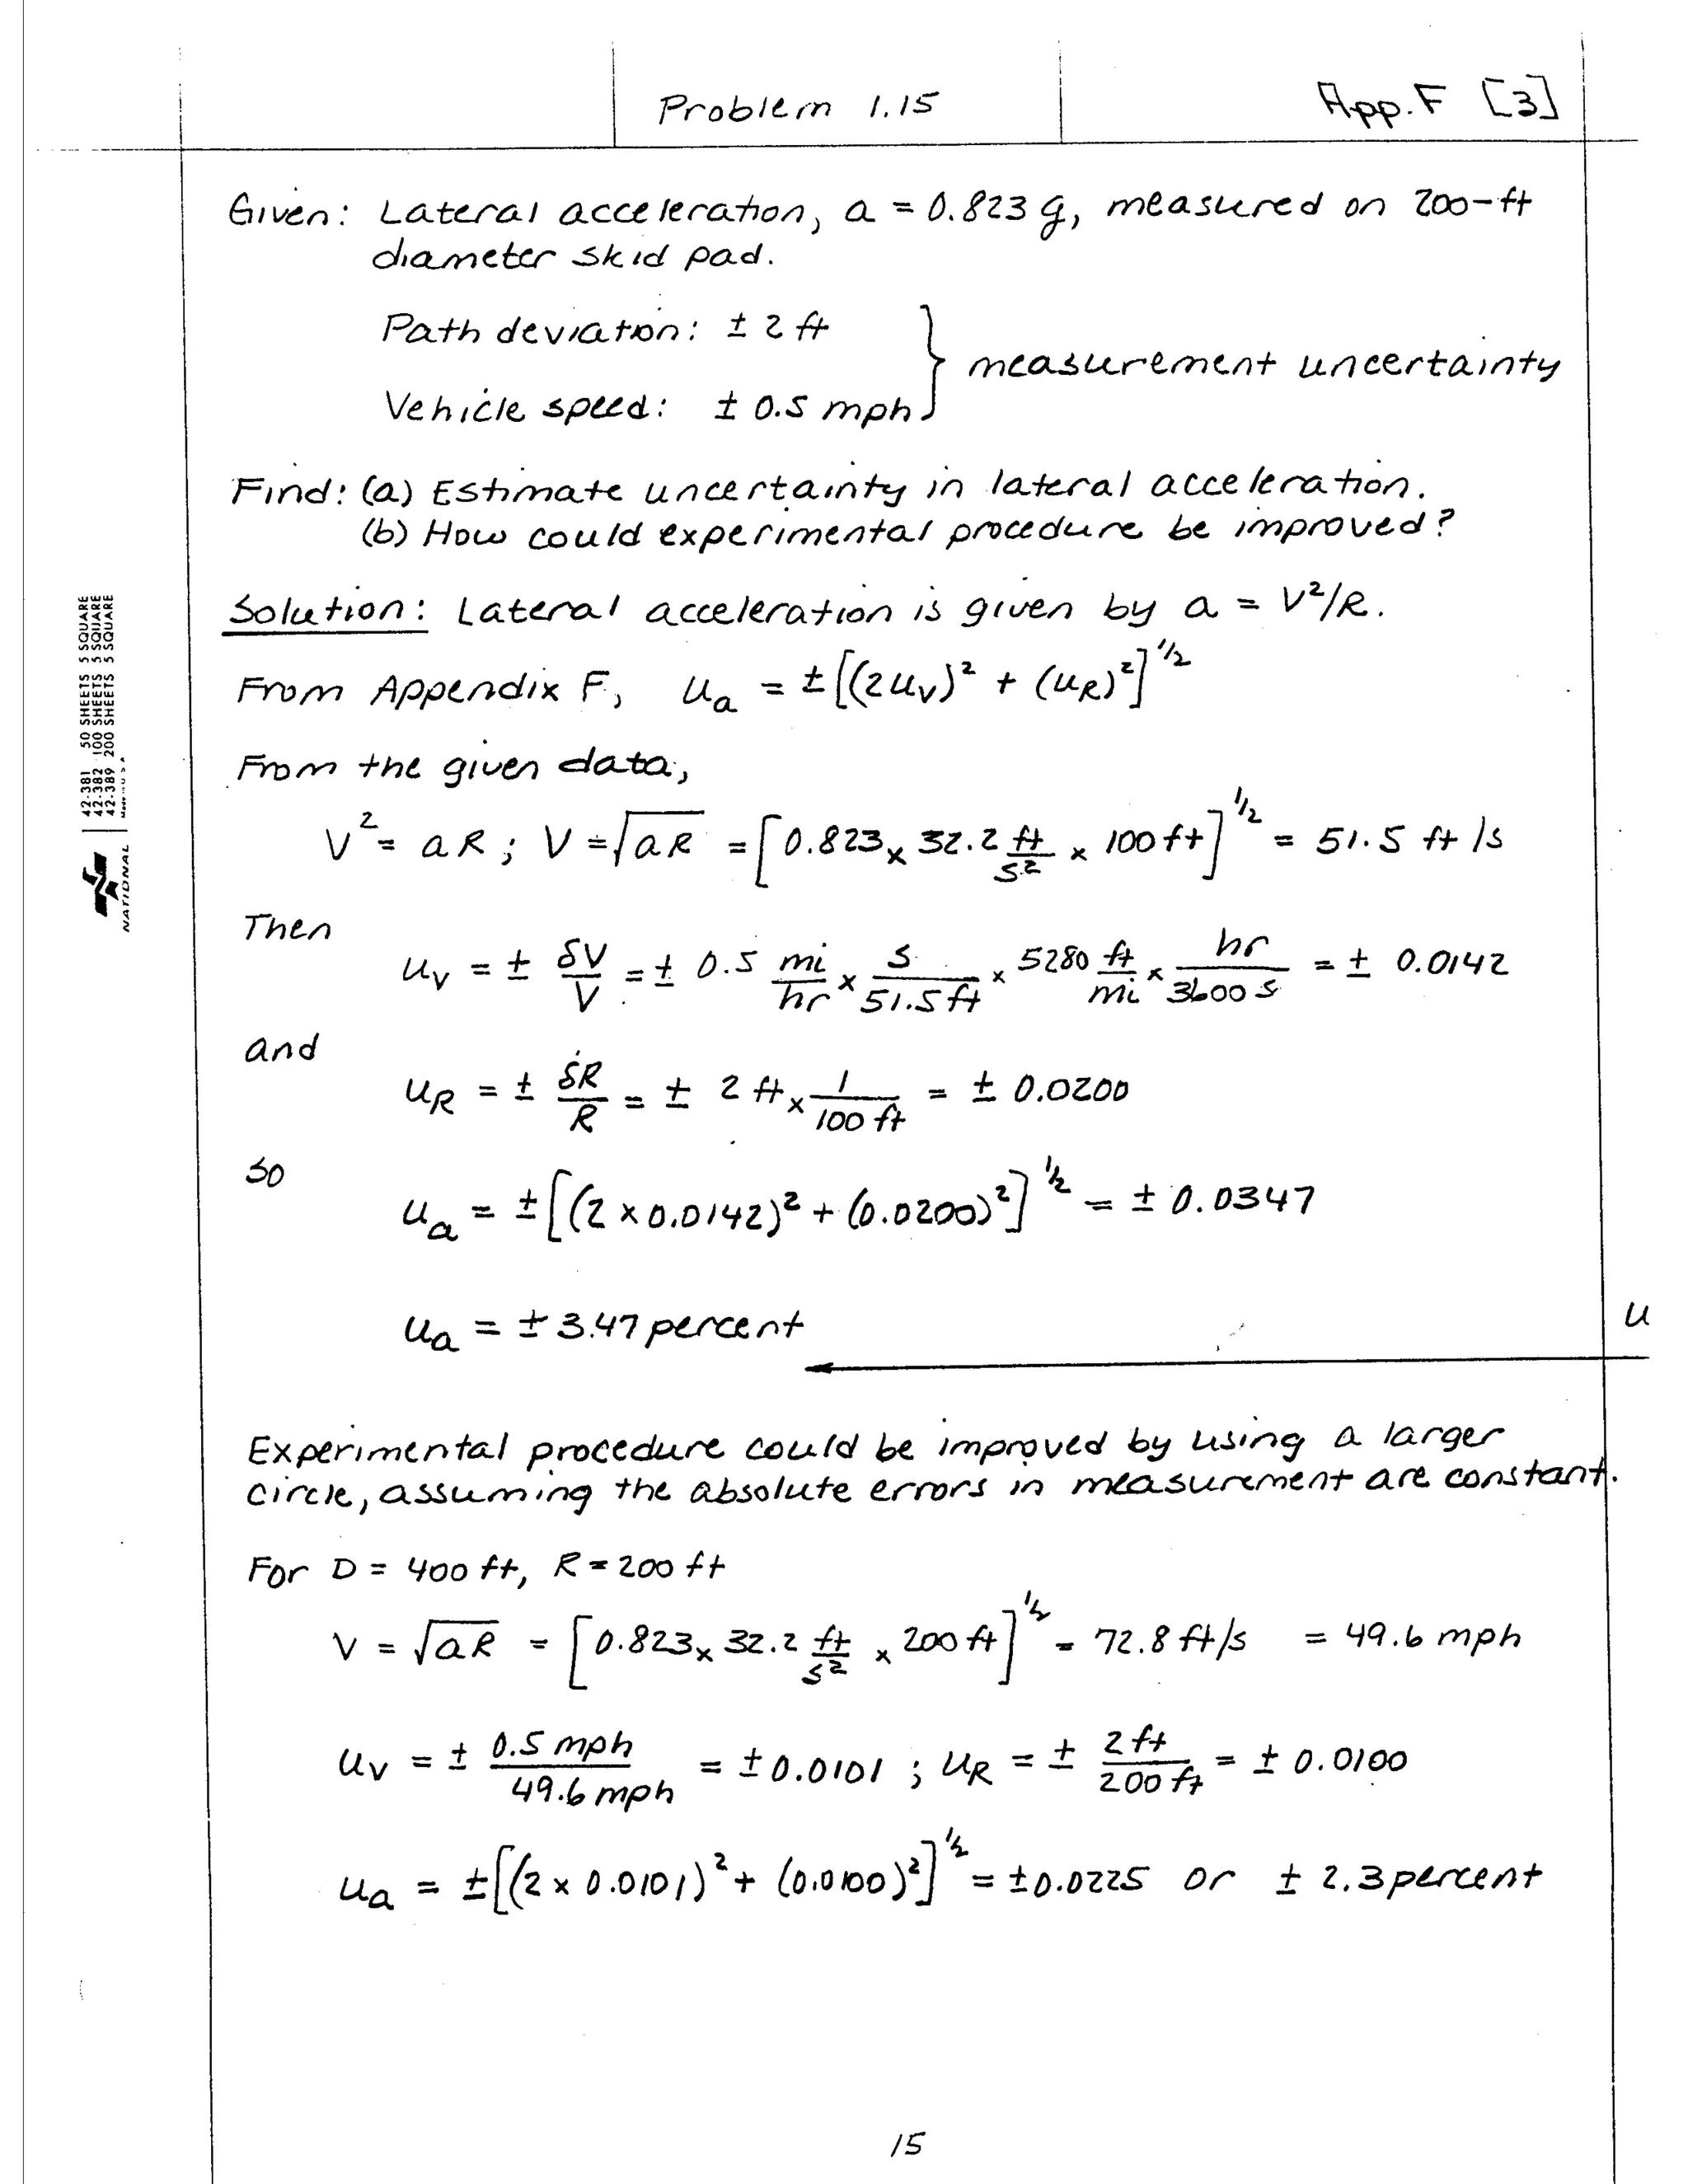 Problem 1.15
App. F [3]
Given: Lateral acceleration, a = 0.823 g, measured on 200-ft
diameter skid pad.
Path deviation: ± 2 ft
} measurement uncertainty
Vehicle speed: ± 0.5 mph
Find: (a) Estimate uncertainty in lateral acceleration.
(b) How could experimental procedure be improved?
Solution: Lateral acceleration is given by a = V²/R.
From Appendix F, u_a = ± [(2u_v)² + (u_R)²]^1/2
From the given data,
V² = aR ; V = √aR = [0.823 x 32.2 ft/s² x 100 ft]^1/2 = 51.5 ft/s
Then
u_v = ± δV/V = ± 0.5 mi/hr x s/51.5 ft x 5280 ft/mi x hr/3600 s = ± 0.0142
and
u_R = ± δR/R = ± 2 ft x 1/100 ft = ± 0.0200
so
u_a = ± [(2 x 0.0142)² + (0.0200)²]^1/2 = ± 0.0347
u_a = ± 3.47 percent
u
Experimental procedure could be improved by using a larger
circle, assuming the absolute errors in measurement are constant.
For D = 400 ft, R = 200 ft
V = √aR = [0.823 x 32.2 ft/s² x 200 ft]^1/2 = 72.8 ft/s = 49.6 mph
u_v = ± 0.5 mph/49.6 mph = ± 0.0101 ; u_R = ± 2 ft/200 ft = ± 0.0100
u_a = ± [(2 x 0.0101)² + (0.0100)²]^1/2 = ± 0.0225 or ± 2.3 percent
15
42-381 50 SHEETS 5 SQUARE
42-382 100 SHEETS 5 SQUARE
42-389 200 SHEETS 5 SQUARE
NATIONAL